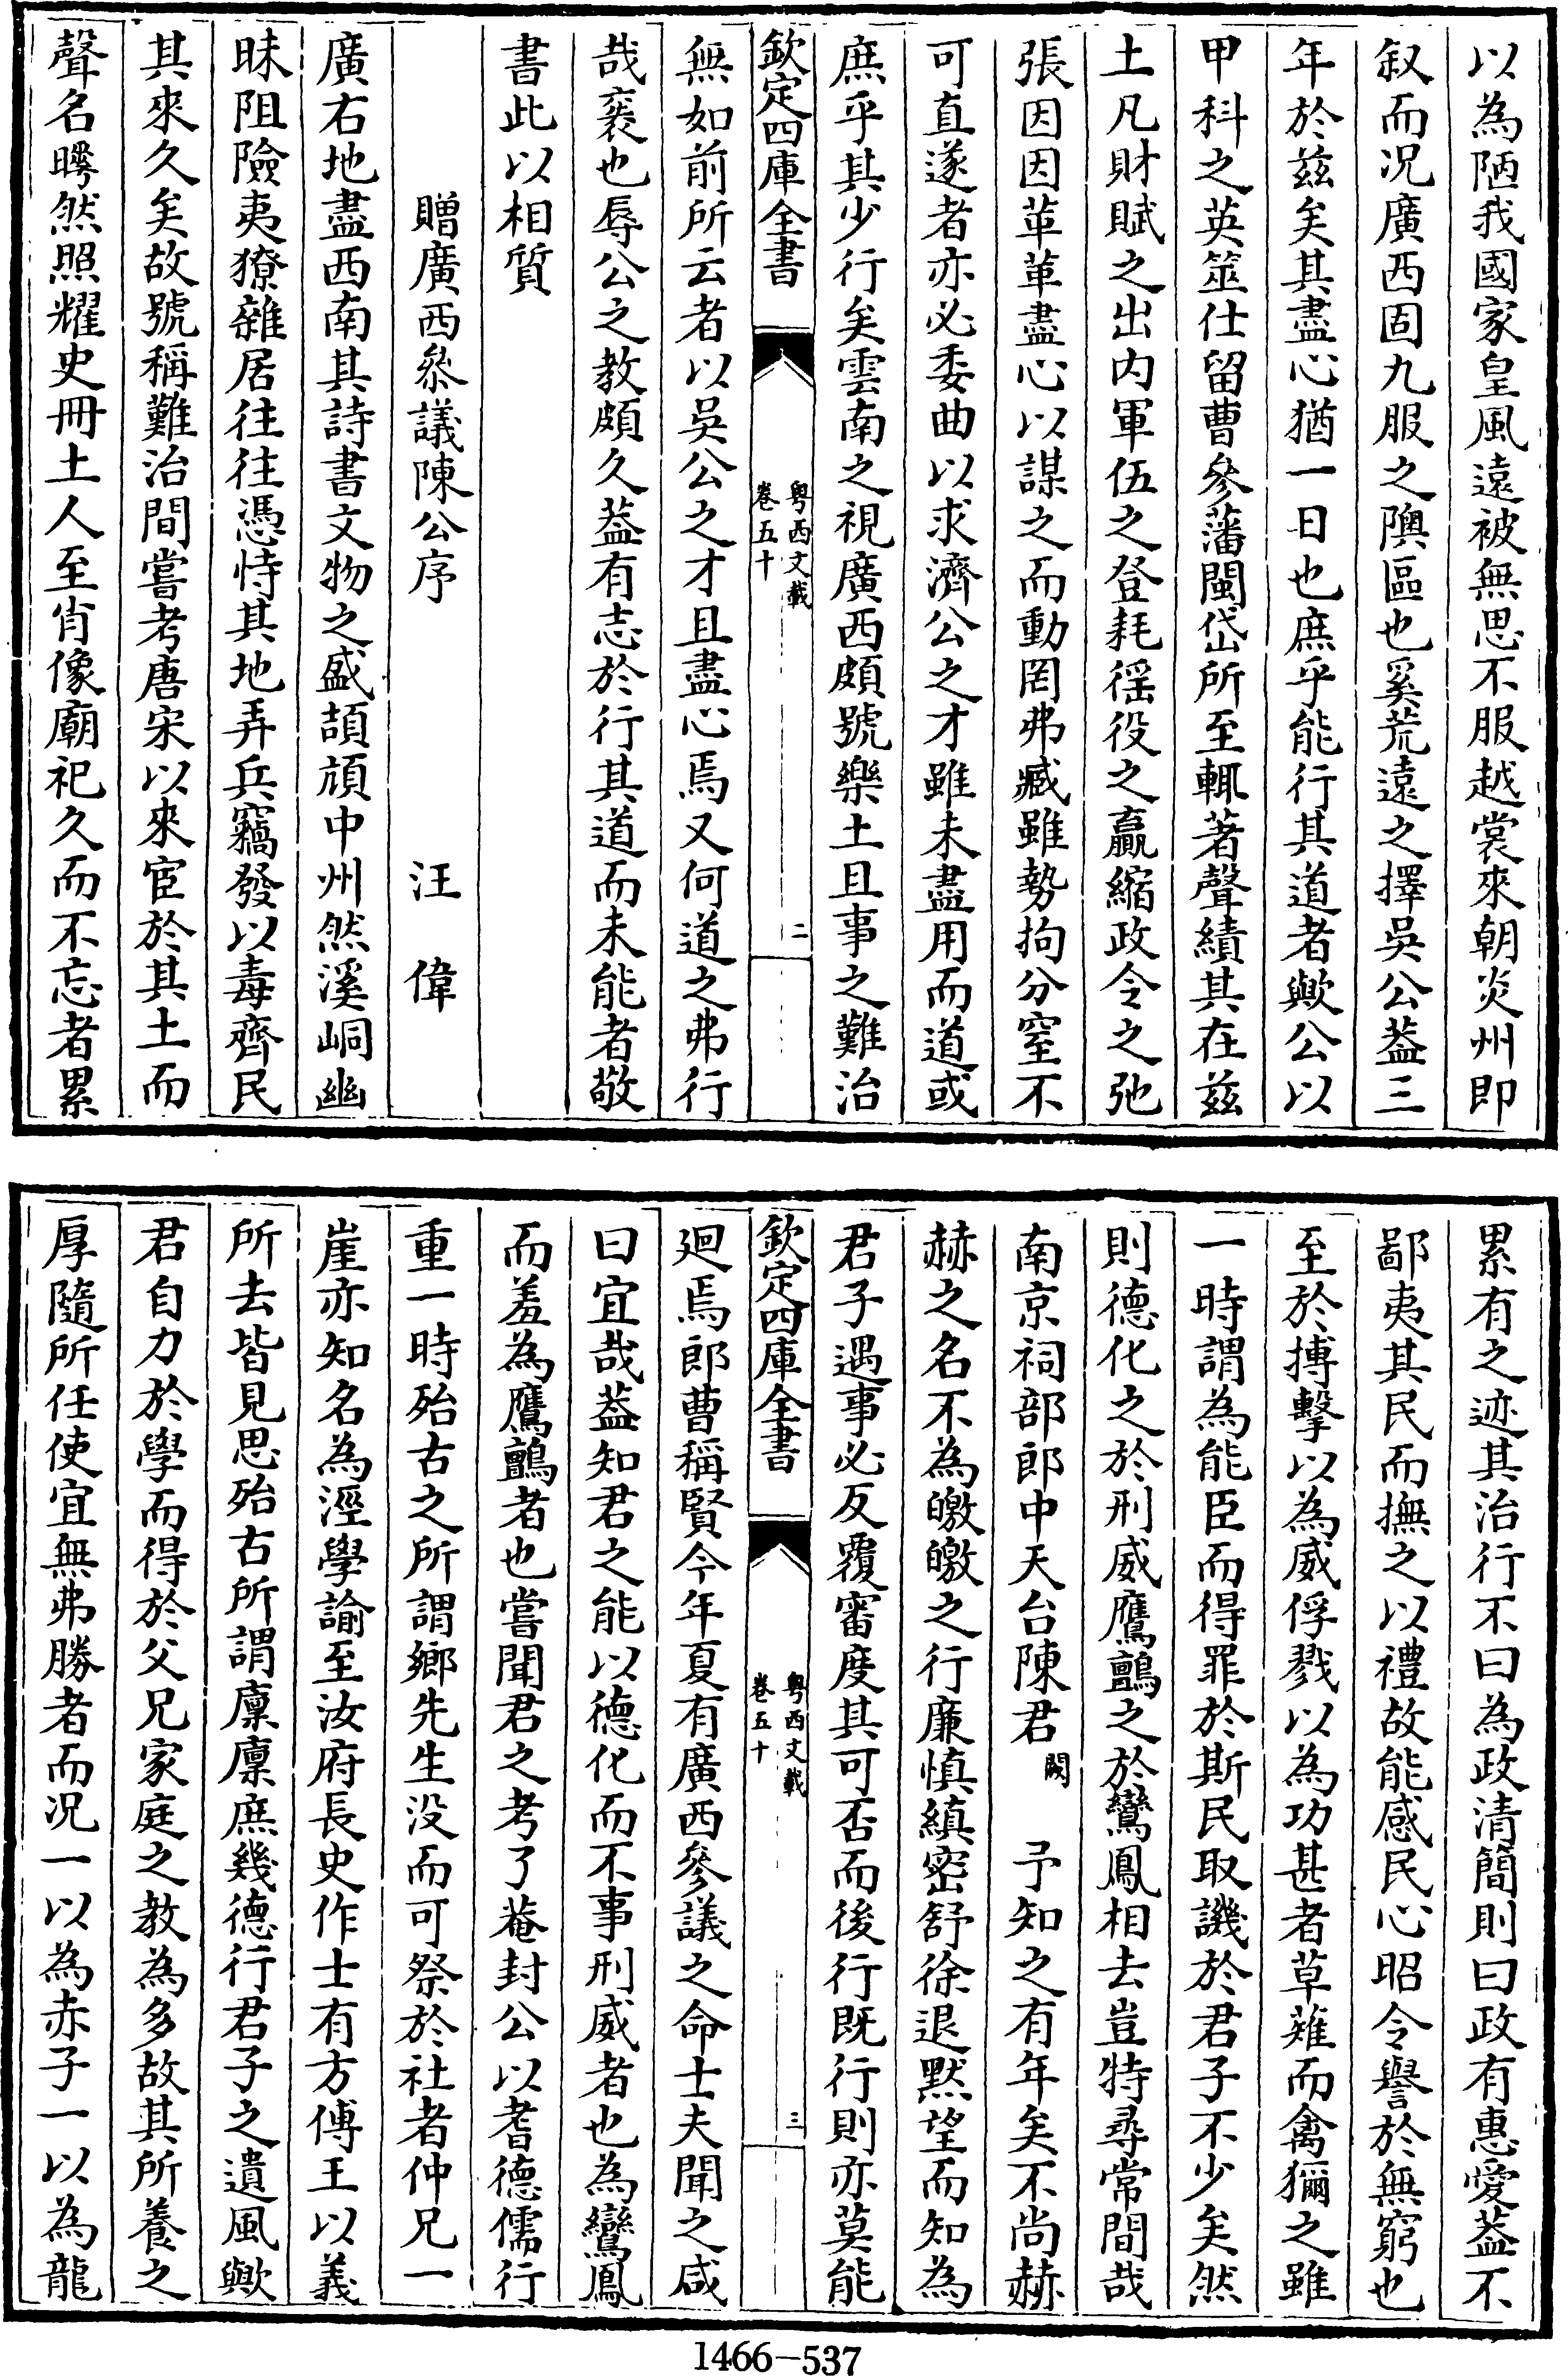 以為陋我國家皇風遠被無思不服越裳來朝炎州即
叙而况廣西固九服之隩區也奚荒遠之擇吳公葢三
年於兹矣其盡心猶一日也庶乎能行其道者歟公以
甲科之英筮仕留曹參藩閩岱所至輒著聲績其在兹
土凡財賦之出内軍伍之登耗徭役之贏縮政令之弛
張因因革革盡心以謀之而動罔弗臧雖勢拘分窒不
可直遂者亦必委曲以求濟公之才雖未盡用而道或
庶乎其少行矣雲南之視廣西頗號樂土且事之難治
欽定四庫全書
粤西文載
卷五十
二
無如前所云者以吳公之才且盡心焉又何道之弗行
哉衮也辱公之教頗久葢有志於行其道而未能者敬
書此以相質
贈廣西叅議陳公序 汪偉
廣右地盡西南其詩書文物之盛頡頏中州然溪峒幽
昧阻險夷獠雜居往往憑恃其地弄兵竊發以毒齊民
其來久矣故號稱難治間嘗考唐宋以來宦於其土而
聲名曄然照耀史冊土人至肖像廟祀久而不忘者累
累有之迹其治行不曰為政清簡則曰政有惠愛葢不
鄙夷其民而撫之以禮故能感民心昭令譽於無窮也
至於搏擊以為威俘戮以為功甚者草薙而禽獮之雖
一時謂為能臣而得罪於斯民取譏於君子不少矣然
則德化之於刑威鷹鸇之於鸞鳳相去豈特尋常間哉
南京祠部郎中天台陳君闕予知之有年矣不尚赫
赫之名不為皦皦之行廉慎縝密舒徐退默望而知為
君子遇事必反覆審度其可否而後行既行則亦莫能
欽定四庫全書
粤西文載
卷五十
三
廻焉郎曹稱賢今年夏有廣西參議之命士夫聞之咸
曰宜哉葢知君之能以德化而不事刑威者也為鸞鳳
而羞為鷹鸇者也嘗聞君之考了菴封公以耆德儒行
重一時殆古之所謂鄉先生没而可祭於社者仲兄一
崖亦知名為溼學諭至汝府長史作士有方傅王以義
所去皆見思殆古所謂廩廩庶幾德行君子之遺風歟
君自力於學而得於父兄家庭之教為多故其所養之
厚隨所任使宜無弗勝者而况一以為赤子一以為龍
1466-537